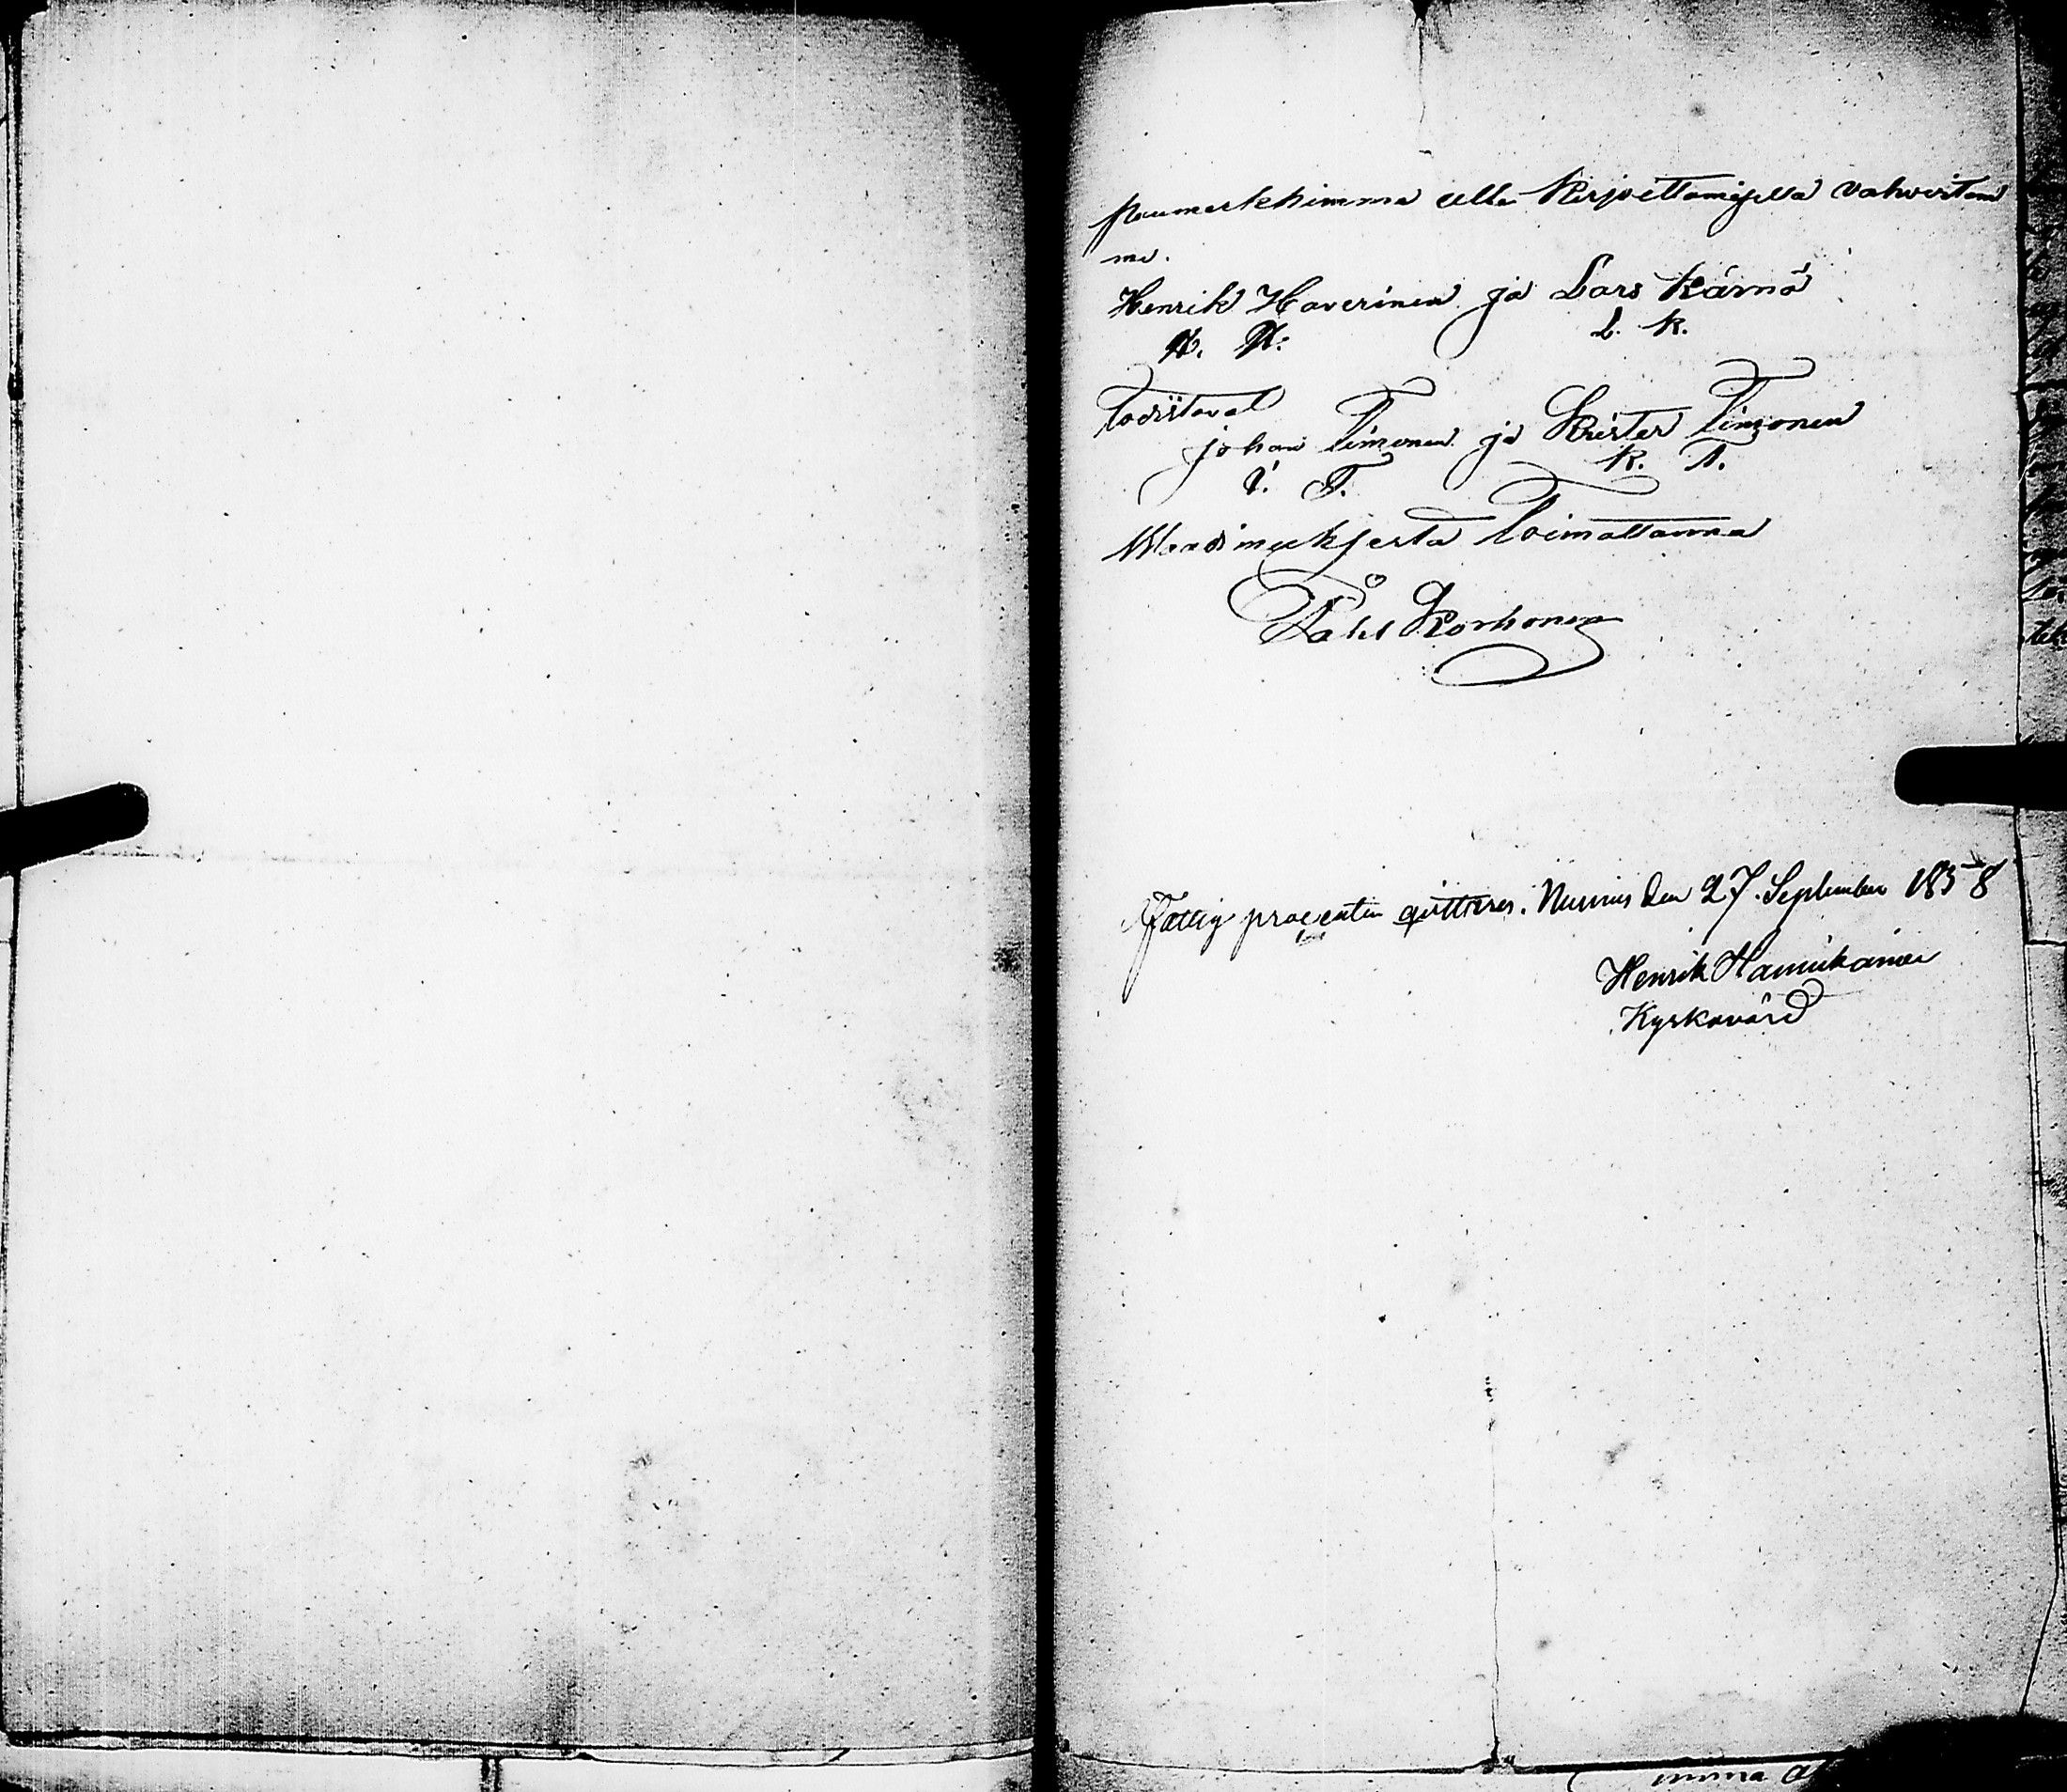 puumerkkimma alla Kirjoittamisella vahvistam
me.
Henrik Haverinen ja Lars Kärnä
H. H. L. K.
Todistavat
johan Timonen ja Krister Timonen
I. T. K. T.
Toimattanna
Påhl Korhonen
Fattig procenten qvitteras. Nurmis den 27. September 1858
Henrik Hannikainen
Kyrkovärd